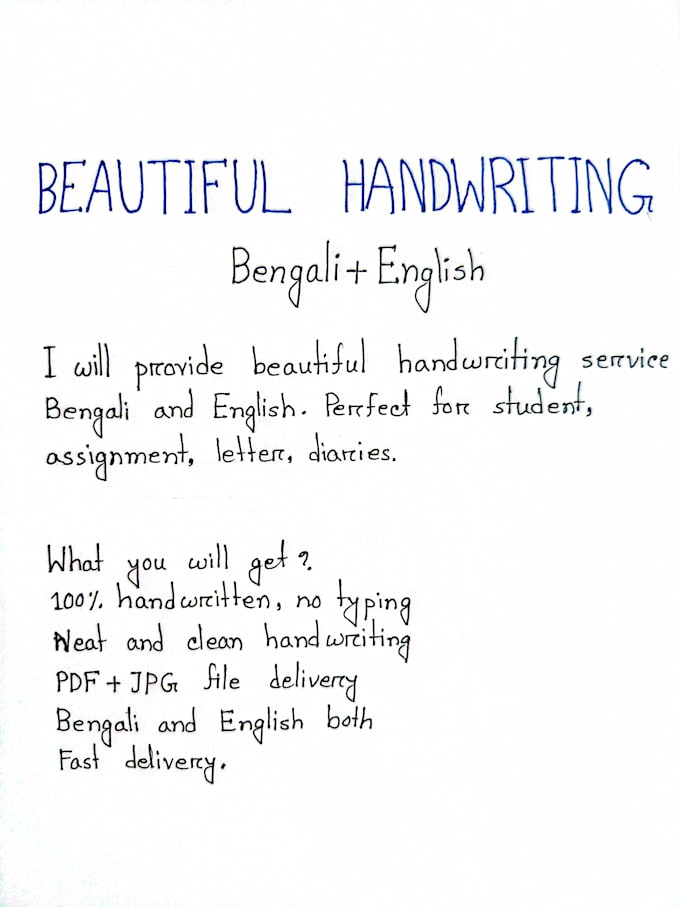 BEAUTIFUL HANDWRITING
Bengali + English
I will provide beautiful handwriting service
Bengali and English. Perfect for student,
assignment, letter, diaries.
What you will get?
100% handwritten, no typing
Neat and clean handwriting
PDF + JPG file delivery
Bengali and English both
Fast delivery.